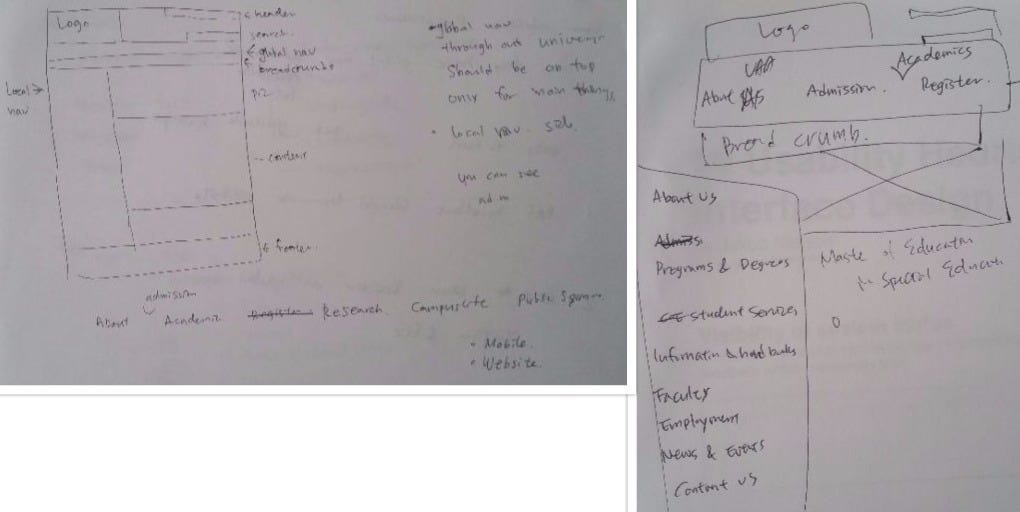 Logo
header
search
global nav
breadcrumbs
Local
nav
content
footer
global nav
through out
should be on top
only for main things
local nav.
you can see
admission
About Academic Research Campus Life Public
Mobile.
Website.
Logo
Academics
About Admission. Register.
Bread crumb.
About Us
Programs & Degrees
Student Services
Information & hand books
Faculty
Employment
News & Events
Contact us
Master of Education
in Special Education